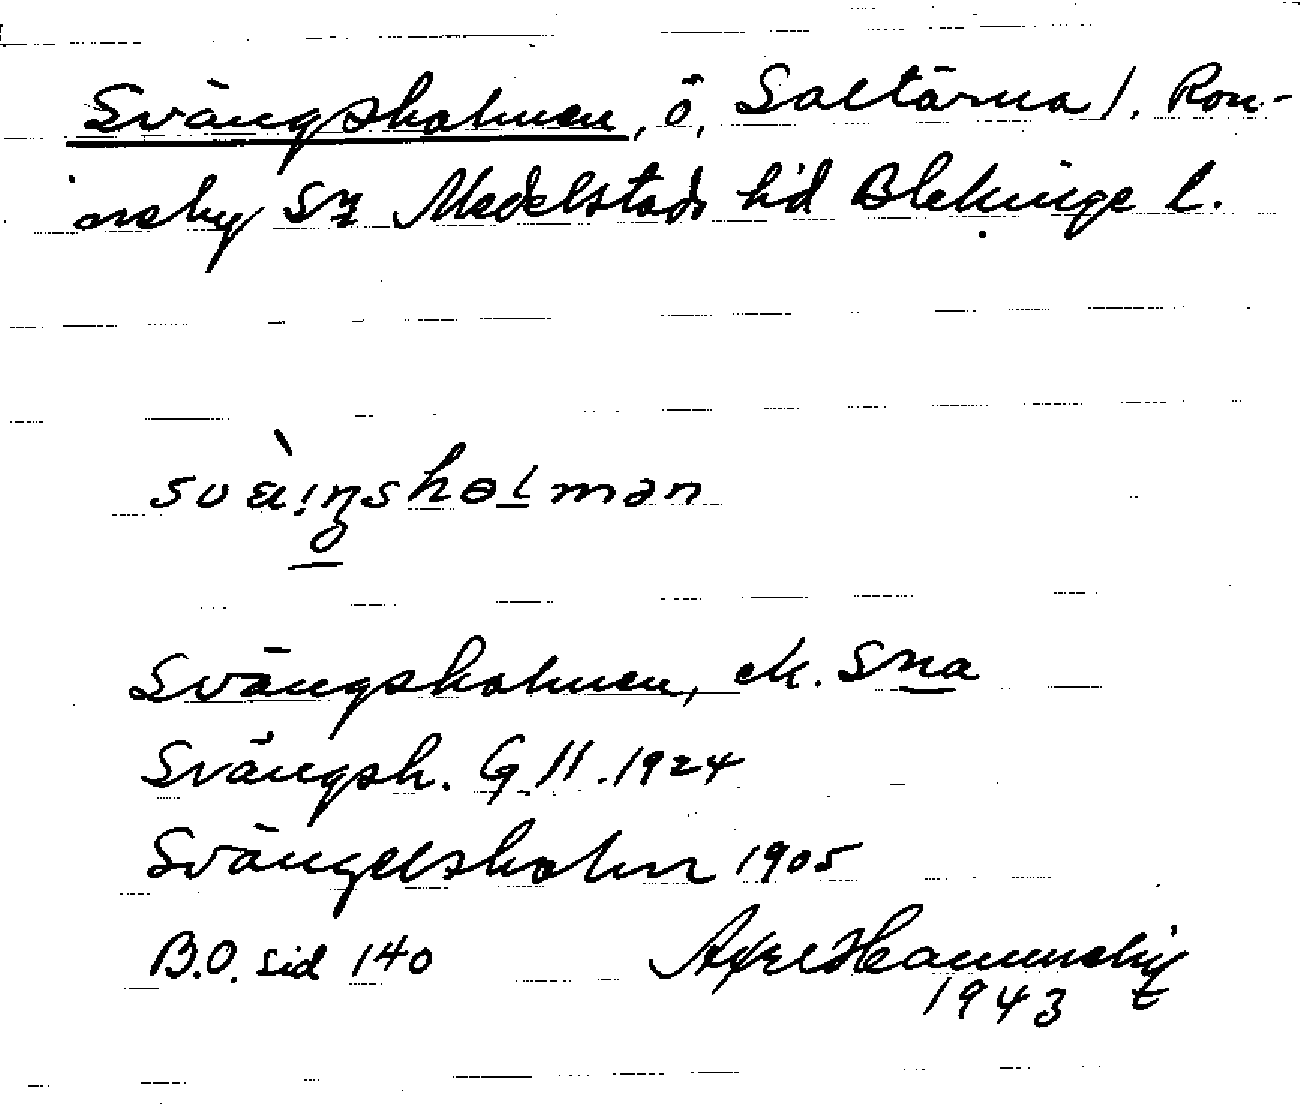 Svängsholmen, ö, Saltärna), Ron-
neby sn Medelstads hd Blekinge l.
svɛ̀ŋsholmən
Svängsholmen, ek. Sna
Svängsh. G 11. 1924
Svängelsholm 1905
B.O. sid 140
1943